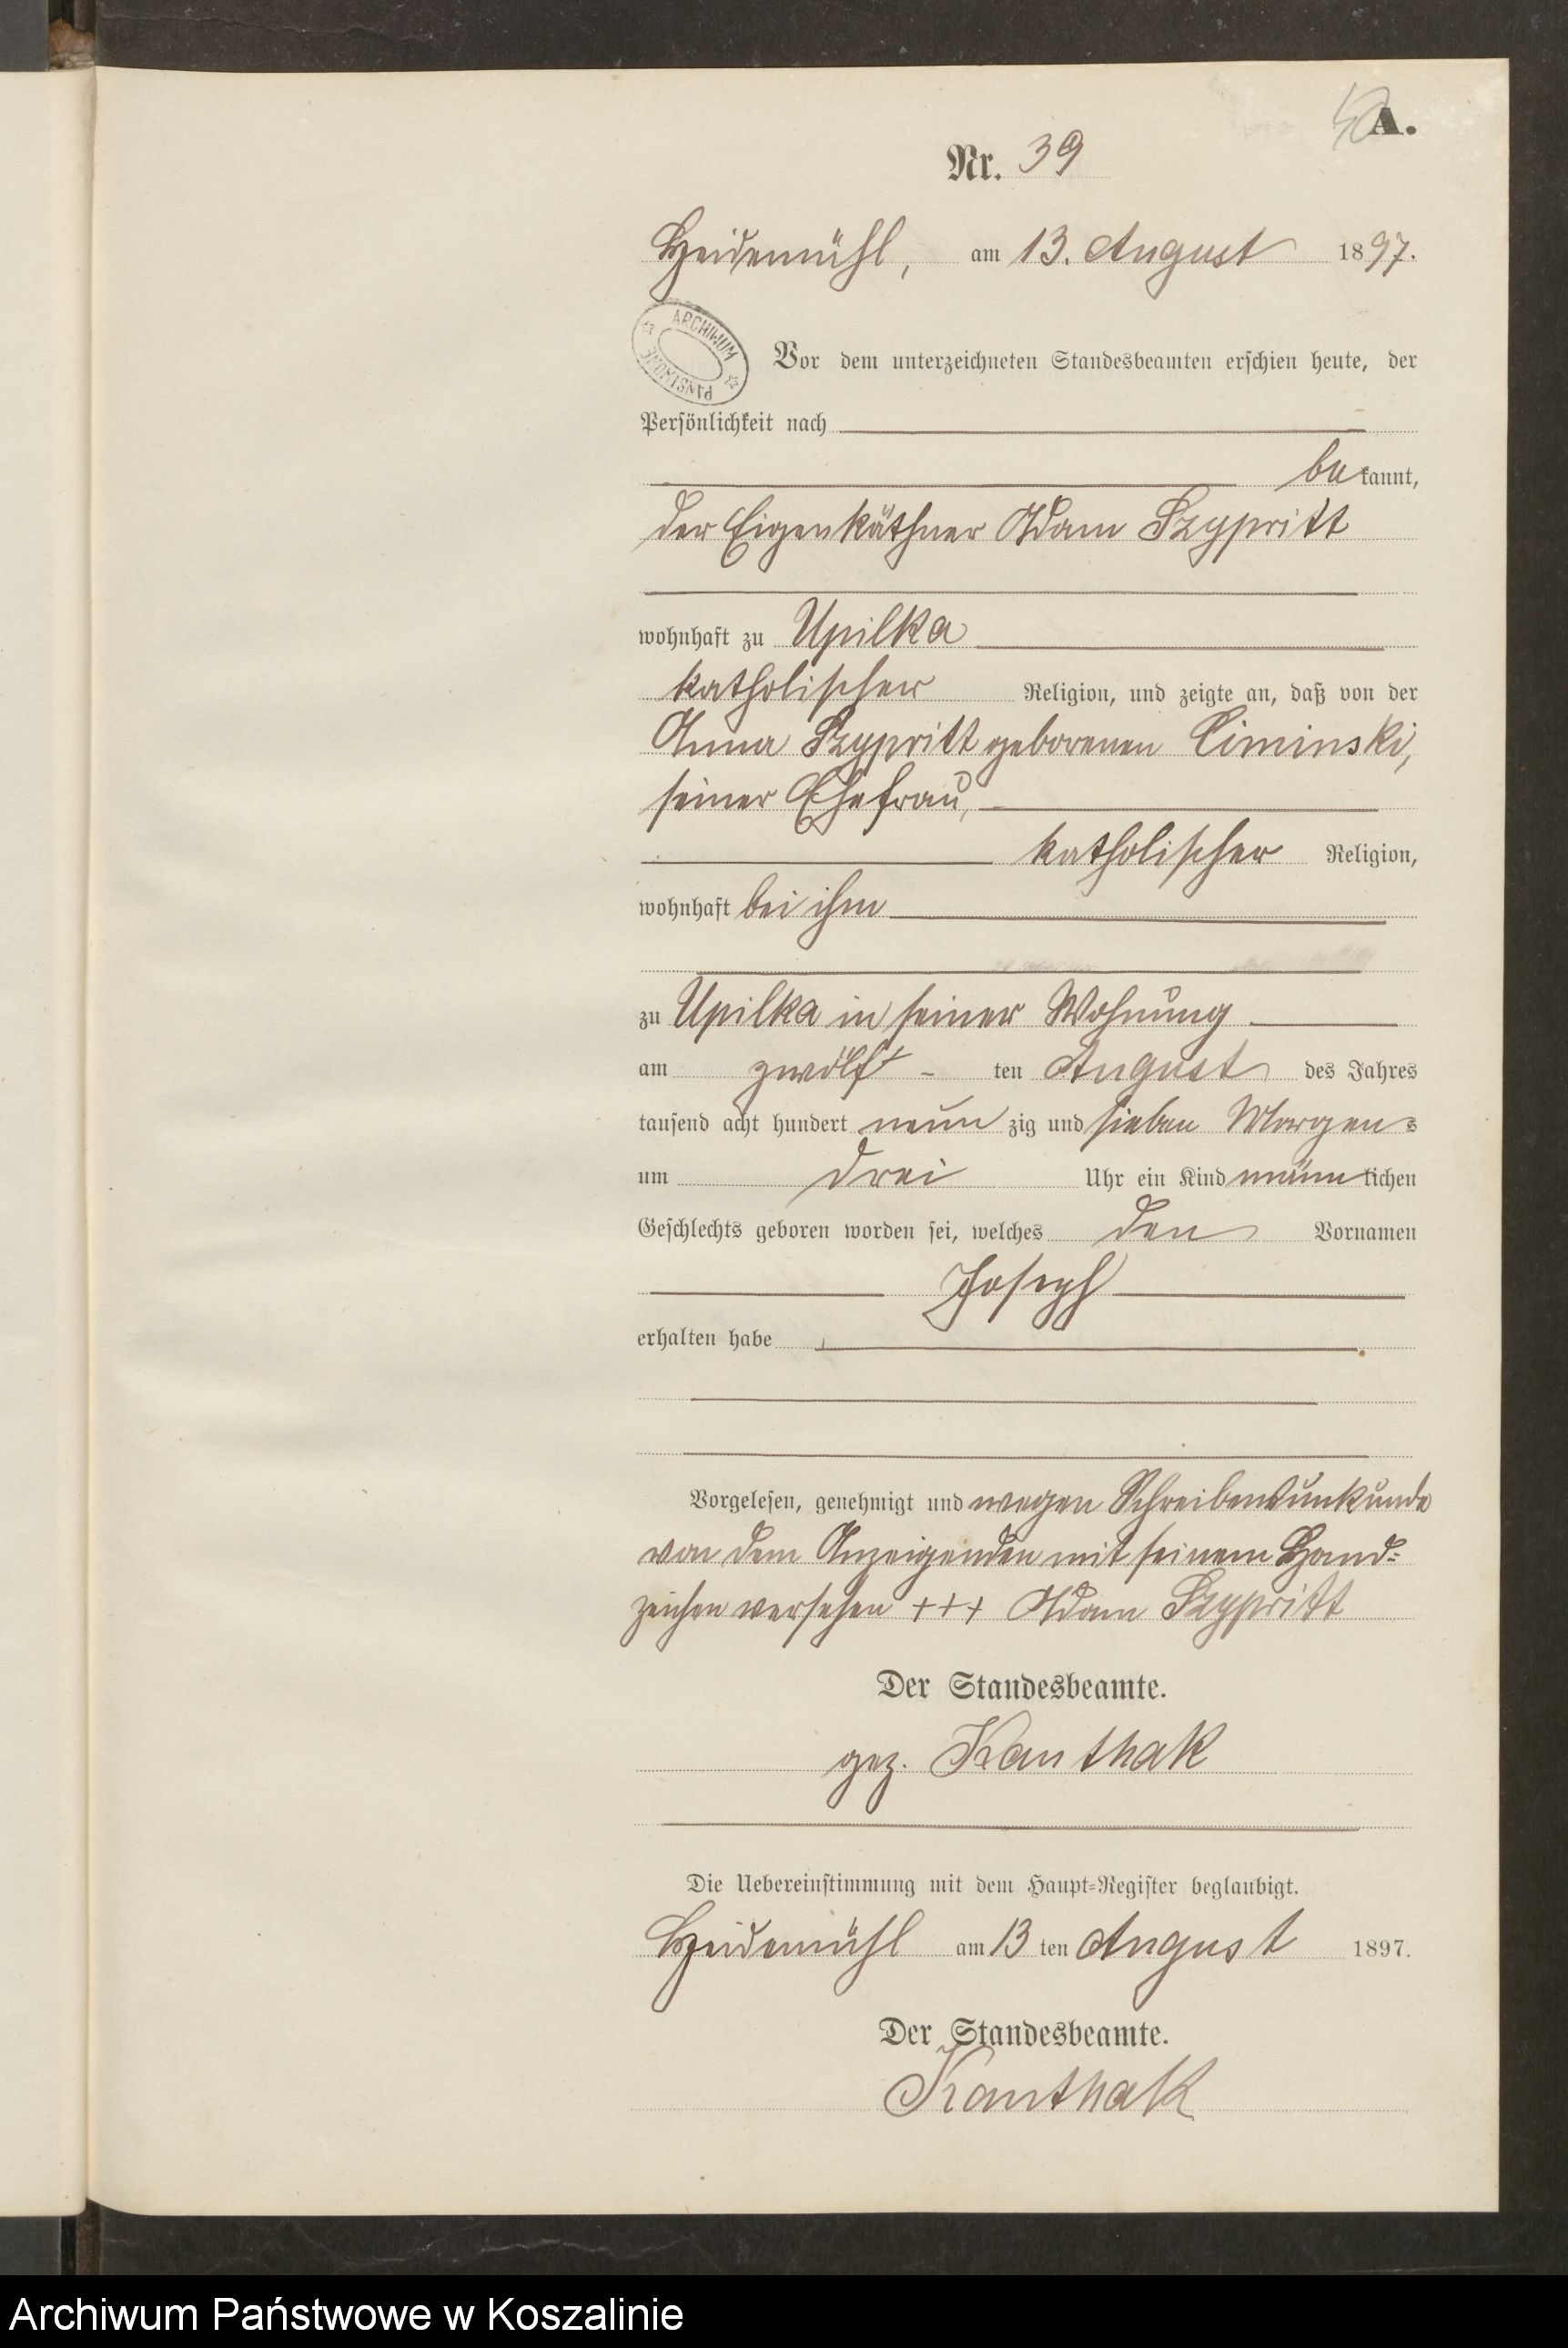 A.
Nr. 39
Heidemühl, am 13. August 1897.
ARCHIWUM PAŃSTWOWE
Vor dem unterzeichneten Standesbeamten erschien heute, der
Persönlichkeit nach
bekannt,
der Eigenkäthner Adam Szypritt
wohnhaft zu Upilka
katholischer Religion, und zeigte an, daß von der
Anna Szypritt geborenen Ciminski,
seiner Ehefrau,
katholischer Religion,
wohnhaft bei ihm
zu Upilka in seiner Wohnung
am zwölf - ten August des Jahres
tausend acht hundert neun zig und sieben Morgens
um drei Uhr ein Kind männlichen
Geschlechts geboren worden sei, welches den Vornamen
Joseph
erhalten habe
Vorgelesen, genehmigt und wegen Schreibensunkunde
von dem Anzeigenden mit seinem Hand=
zeichen versehen +++ Adam Szypritt
Der Standesbeamte.
gez. Kanthak
Die Uebereinstimmung mit dem Haupt=Register beglaubigt.
Heidemühl am 13 ten August 1897.
Der Standesbeamte.
Kanthak
Archiwum Państwowe w Koszalinie